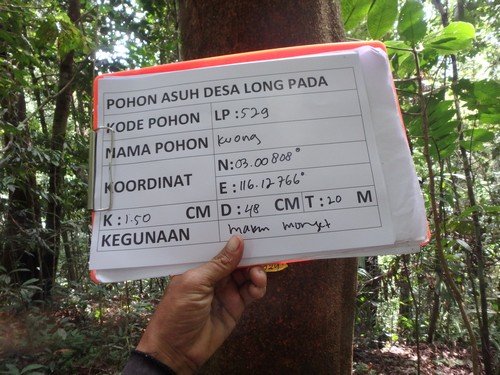 POHON ASUH DESA LONG PADA
KODE POHON LP : 529
NAMA POHON Kuong
KOORDINAT N : 03.00808°
E : 116.12766°
K : 1.50 CM D : 48 CM T : 20 M
KEGUNAAN makan monyet